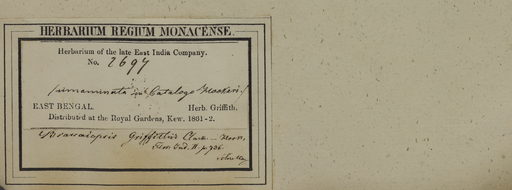 HERBARIUM REGIUM MONACENSE.
Herbarium of the late East India Company.
No. 2697
(innominata in Catalogo Hookeri)
EAST BENGAL. Herb. Griffith.
Distributed at the Royal Gardens, Kew. 1861-2.
Brassaiopsis Griffithii Clarke
Ind. II. p. 736.